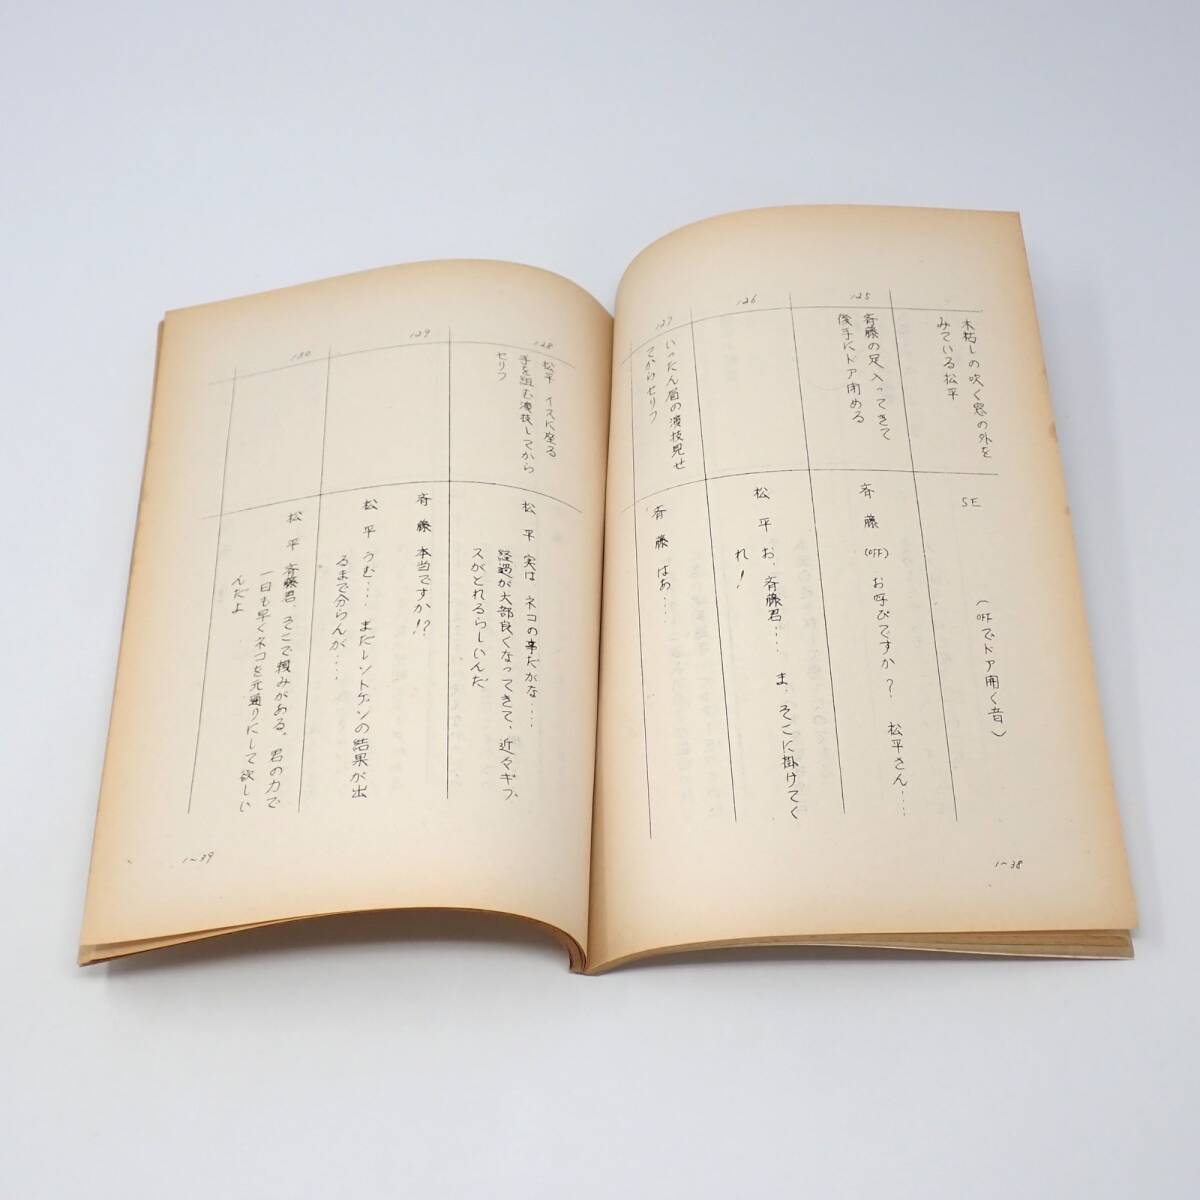 木枯しの吹く窓の外を
みている松平
SE
(OFFでドア開く音)
125
斉藤の足入ってきて
後手にドア閉める
斉 藤 (OFF) お呼びですか? 松平さん‥‥
126
松 平 お、斉藤君‥‥ ま、そこに掛けてく
れ!
127
いったん眉の演技見せ
てからセリフ
斉 藤 はあ‥‥
1~38
128
松平 イスに座る
手を組む演技してから
セリフ
松 平 実は ネコの事だがな‥‥
経過が大部良くなってきて、近々ギプ
スがとれるらしいんだ
129
斉 藤 本当ですか!?
松 平 うむ‥‥ まだレントゲンの結果が出
るまで分らんが‥‥
130
松 平 斉藤君、そこで頼みがある。君の力で
一日も早くネコを元通りにして欲しい
んだよ
1~39